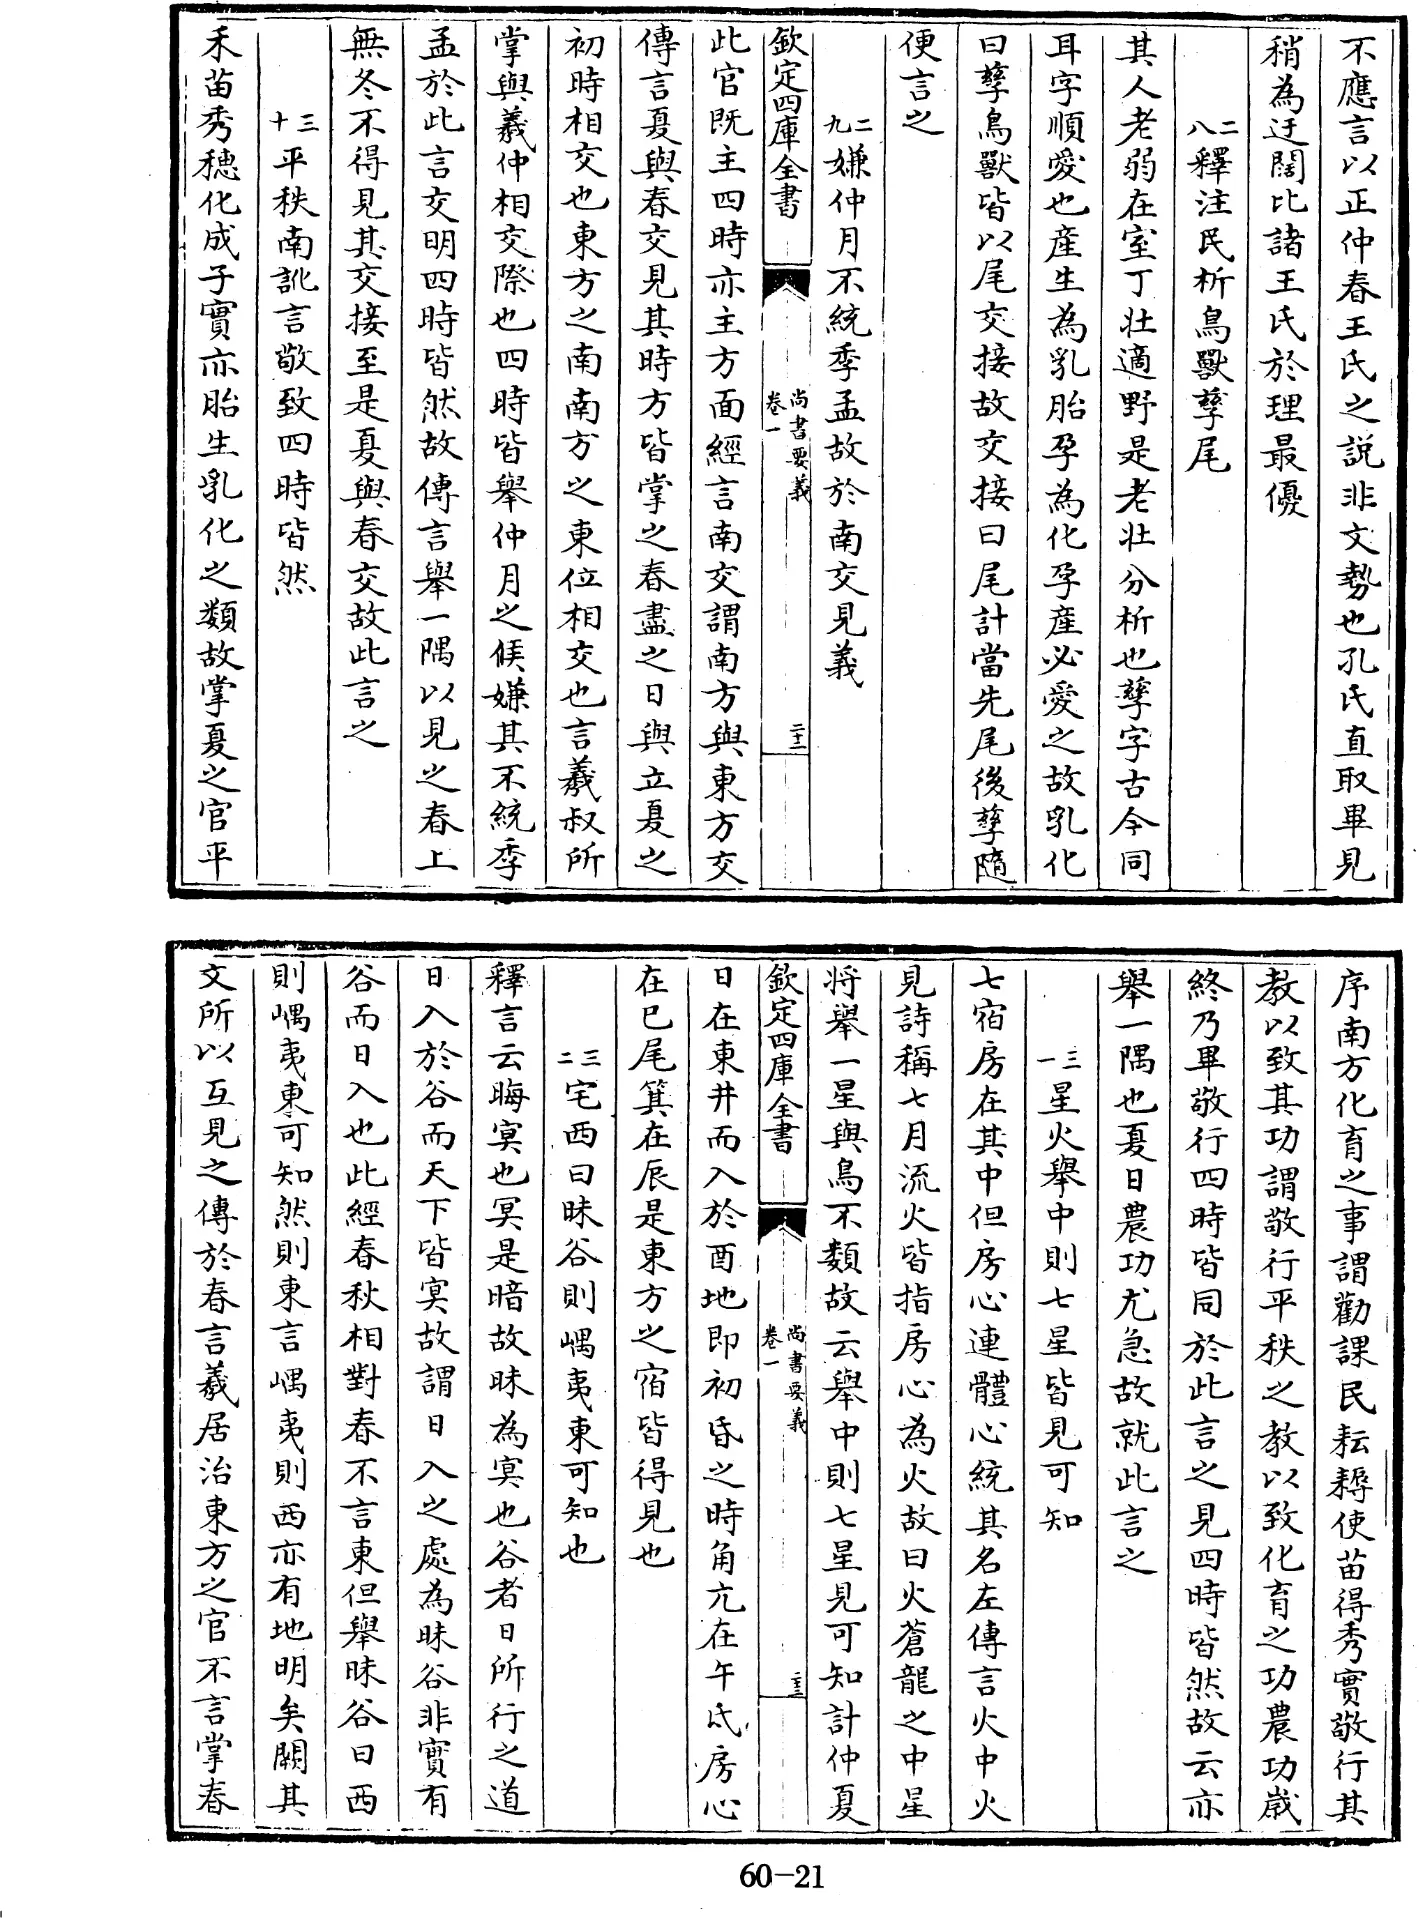 不應言以正仲春王氏之説非文勢也孔氏直取畢見
稍為迂闊比諸王氏於理最優
二八釋注民析鳥獸孳尾
其人老弱在室丁壯適野是老壯分析也孳字古今同
耳字順愛也産生為乳胎孕為化孕産必愛之故乳化
曰孳鳥獸皆以尾交接故交接曰尾計當先尾後孳隨
便言之
二九嫌仲月不統季孟故於南交見義
欽定四庫全書
尚書要義
卷一
二十二
此官既主四時亦主方面經言南交謂南方與東方交
傳言夏與春交見其時方皆掌之春盡之日與立夏之
初時相交也東方之南南方之東位相交也言羲叔所
掌與羲仲相交際也四時皆舉仲月之候嫌其不統季
孟於此言交明四時皆然故傳言舉一隅以見之春上
無冬不得見其交接至是夏與春交故此言之
三十平秩南訛言敬致四時皆然
禾苗秀穗化成子實亦胎生乳化之類故掌夏之官平
序南方化育之事謂勸課民耘耨使苗得秀實敬行其
教以致其功謂敬行平秩之教以致化育之功農功歲
終乃畢敬行四時皆同於此言之見四時皆然故云亦
舉一隅也夏日農功尤急故就此言之
三一星火舉中則七星皆見可知
七宿房在其中但房心連體心統其名左傳言火中火
見詩稱七月流火皆指房心為火故曰火蒼龍之中星
將舉一星與鳥不類故云舉中則七星見可知計仲夏
欽定四庫全書
尚書要義
卷一
二十三
日在東井而入於酉地即初昏之時角亢在午氐房心
在巳尾箕在辰是東方之宿皆得見也
三二宅西曰昧谷則嵎夷東可知也
釋言云晦㝠也冥是暗故昧為㝠也谷者日所行之道
日入於谷而天下皆㝠故謂日入之處為昧谷非實有
谷而日入也此經春秋相對春不言東但舉昧谷曰西
則嵎夷東可知然則東言嵎夷則西亦有地明矣闕其
文所以互見之傳於春言羲居治東方之官不言掌春
60-21